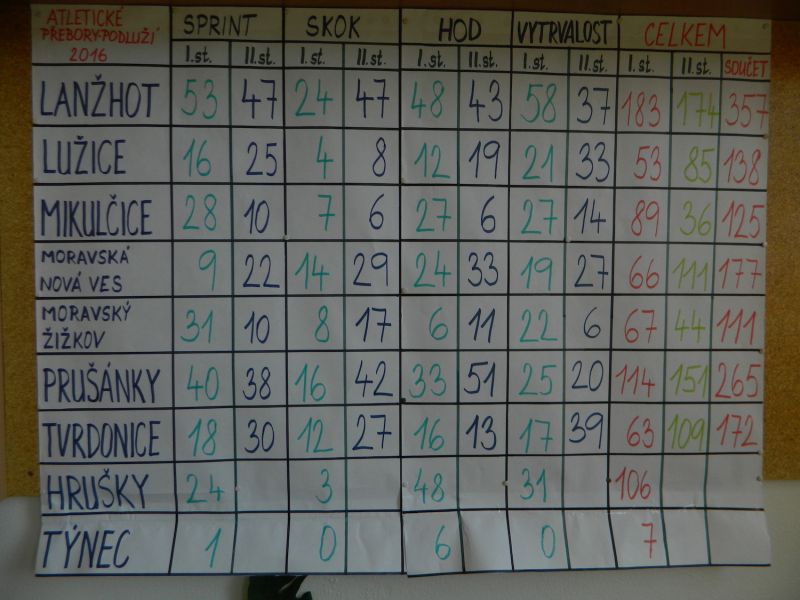 ATLETICKÉ
PŘEBORY-PODLUŽÍ
2016
SPRINT SKOK HOD VYTRVALOST CELKEM
I.st. II.st. I.st. II.st. I.st. II.st. I.st. II.st. I.st. II.st. SOUČET
LANŽHOT 53 47 24 47 48 43 58 37 183 174 357
LUŽICE 16 25 4 8 12 19 21 33 53 85 138
MIKULČICE 28 10 7 6 27 6 27 14 89 36 125
MORAVSKÁ
NOVÁ VES 9 22 14 29 24 33 19 27 66 111 177
MORAVSKÝ
ŽIŽKOV 31 10 8 17 6 11 22 6 67 44 111
PRUŠÁNKY 40 38 16 42 33 51 25 20 114 151 265
TVRDONICE 18 30 12 27 16 13 17 39 63 109 172
HRUŠKY 24 3 48 31 106
TÝNEC 1 0 6 0 7